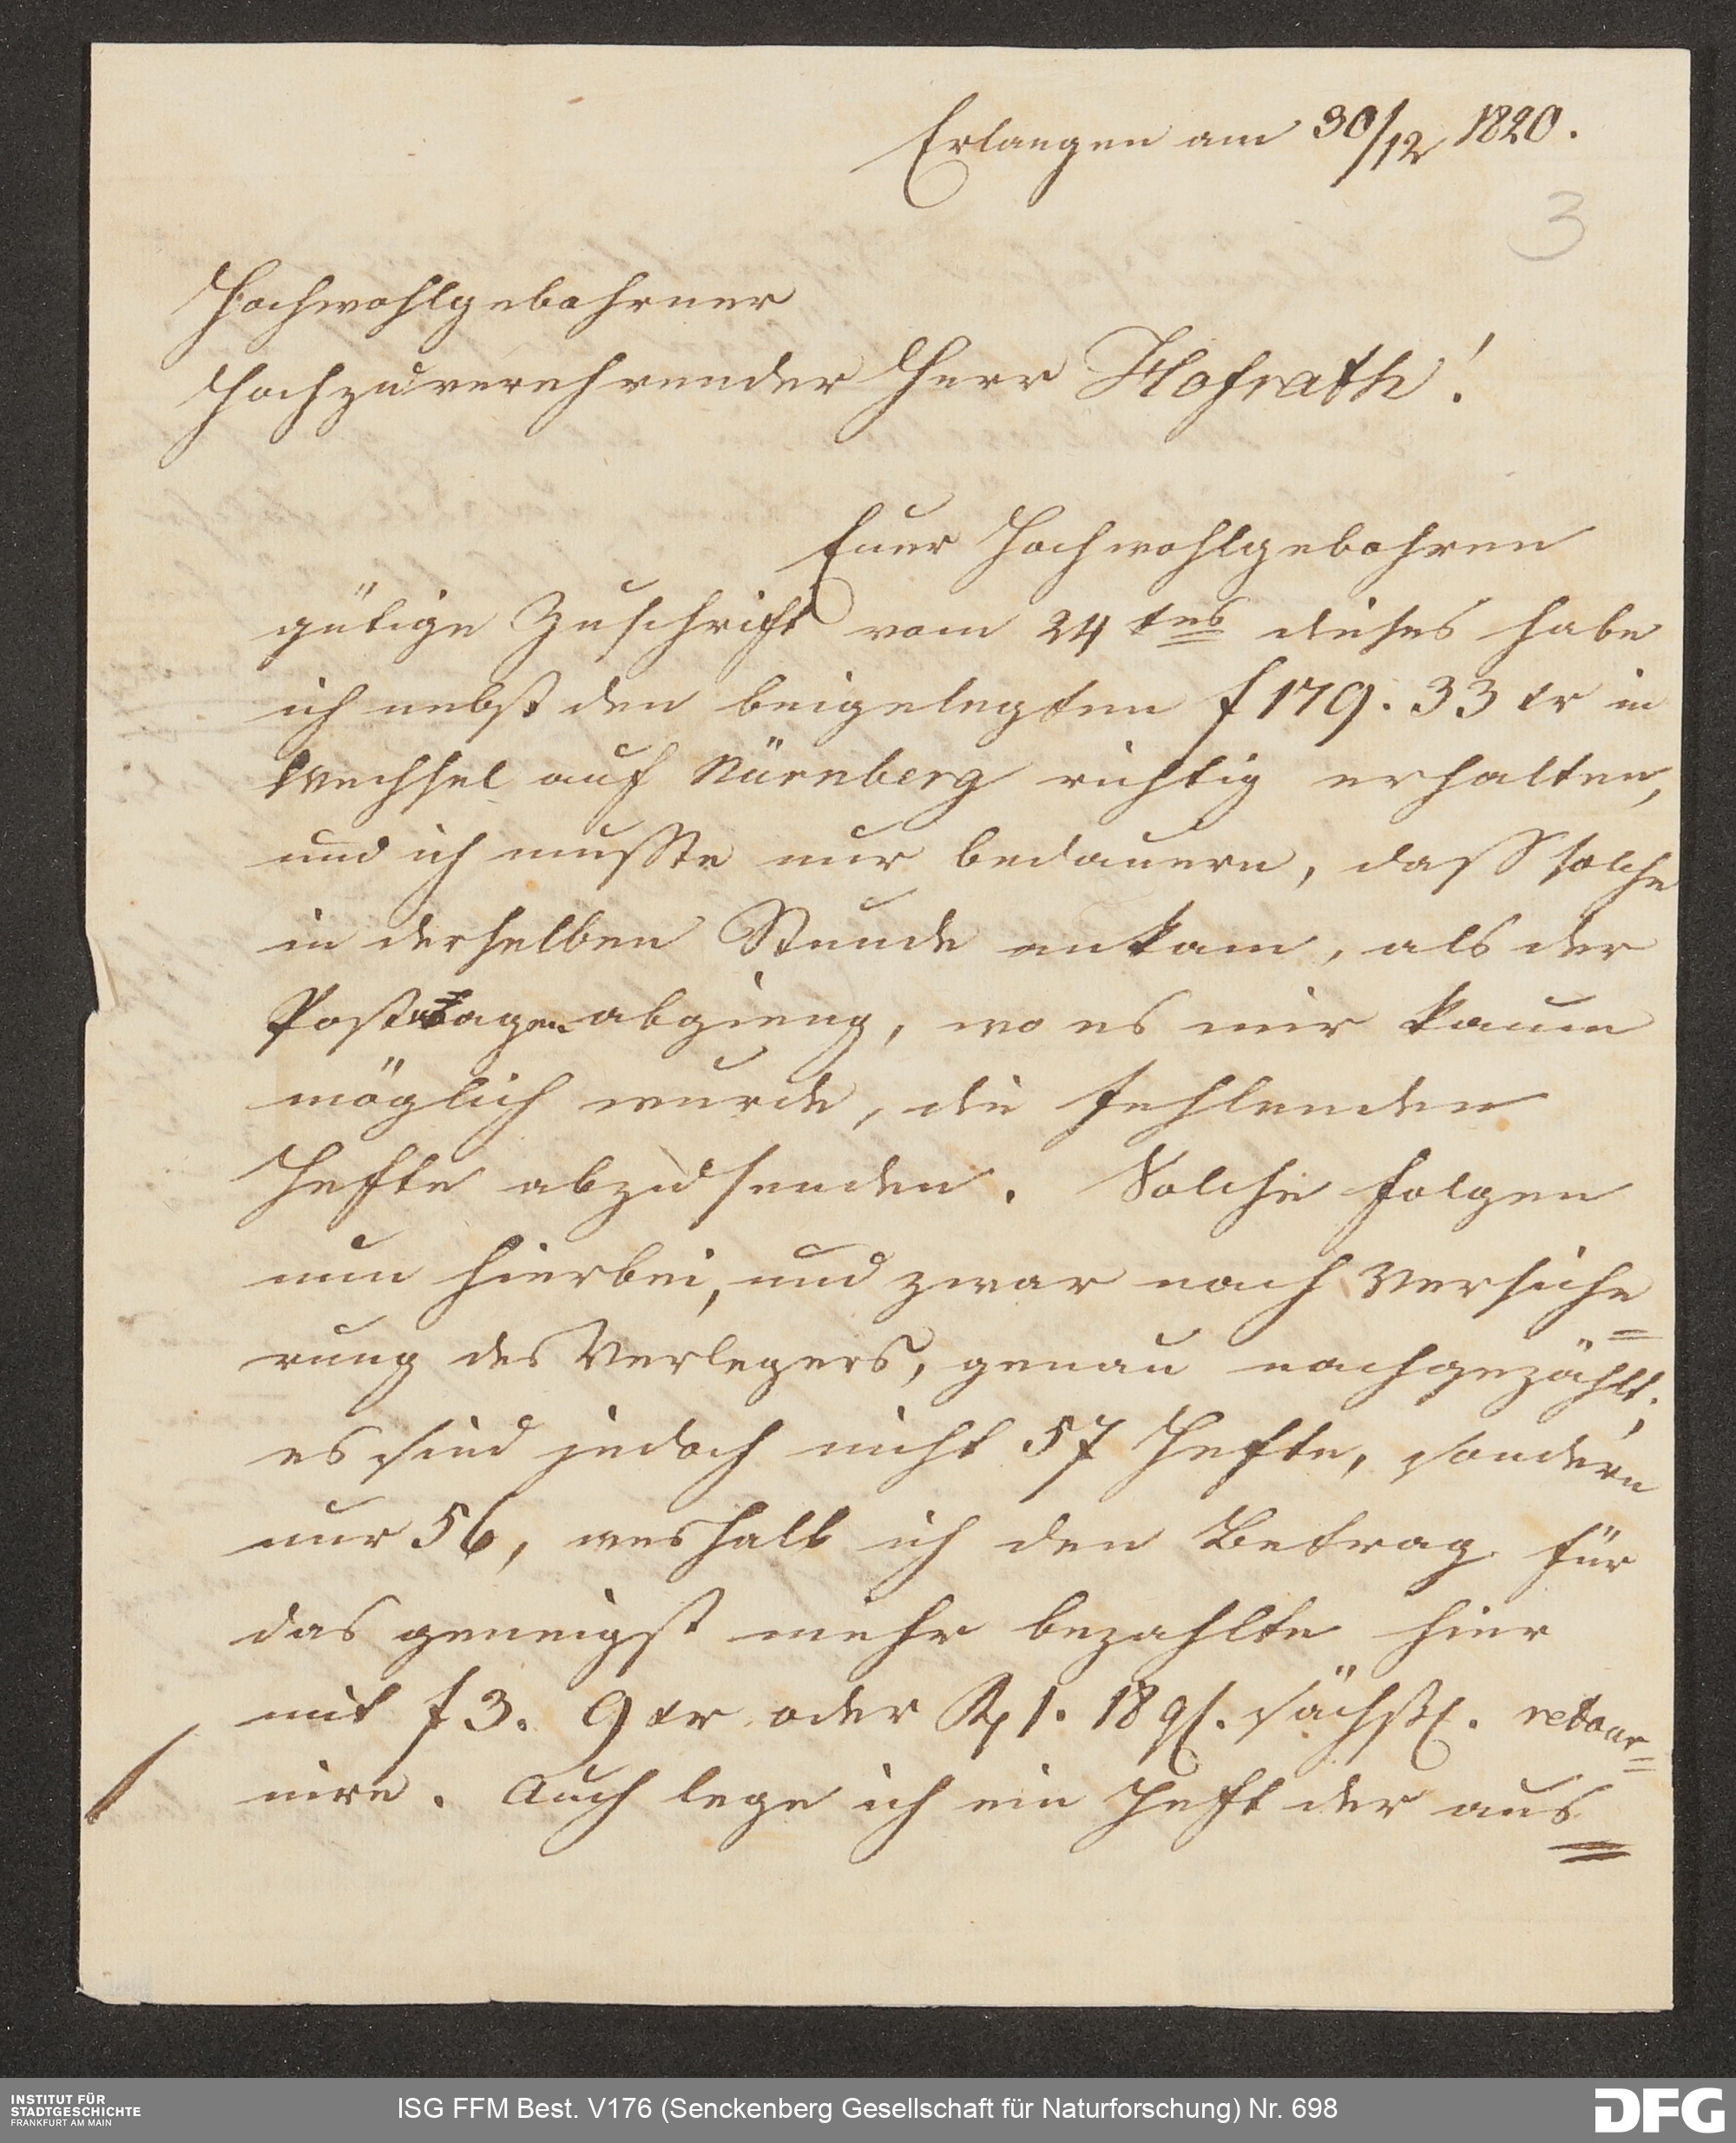 Erlangen am 30/12 1820.
3
Hochwohlgebohrner
Hochzuverehrender Herr Hofrath!
Euer Hochwohlgebohren
gütige Zuschrift vom 24tns dieses habe
ich nebst den beigelegten f 179. 33 xr in
Wechsel auf Nürnberg richtig erhalten,
und ich musste nur bedauern, dass solche
in derselben Stunde ankam, als der
Postwagen abgieng, wo es mir kaum
möglich wurde, die fehlenden
Hefte abzusenden. Solche folgen
nun hierbei, und zwar nach Versiche=
rung des Verlegers, genau nachgezählt;
es sind jedoch nicht 57 Hefte, sondern
nur 56, weshalb ich den Betrag für
das geneigst mehr bezahlte hier
mit f 3. 9 xr oder Rh 1. 18 gl. sächsl. retour=
nire. Auch lege ich ein Heft der aus=
INSTITUT FÜR
STADTGESCHICHTE
FRANKFURT AM MAIN
ISG FFM Best. V176 (Senckenberg Gesellschaft für Naturforschung) Nr. 698
DFG